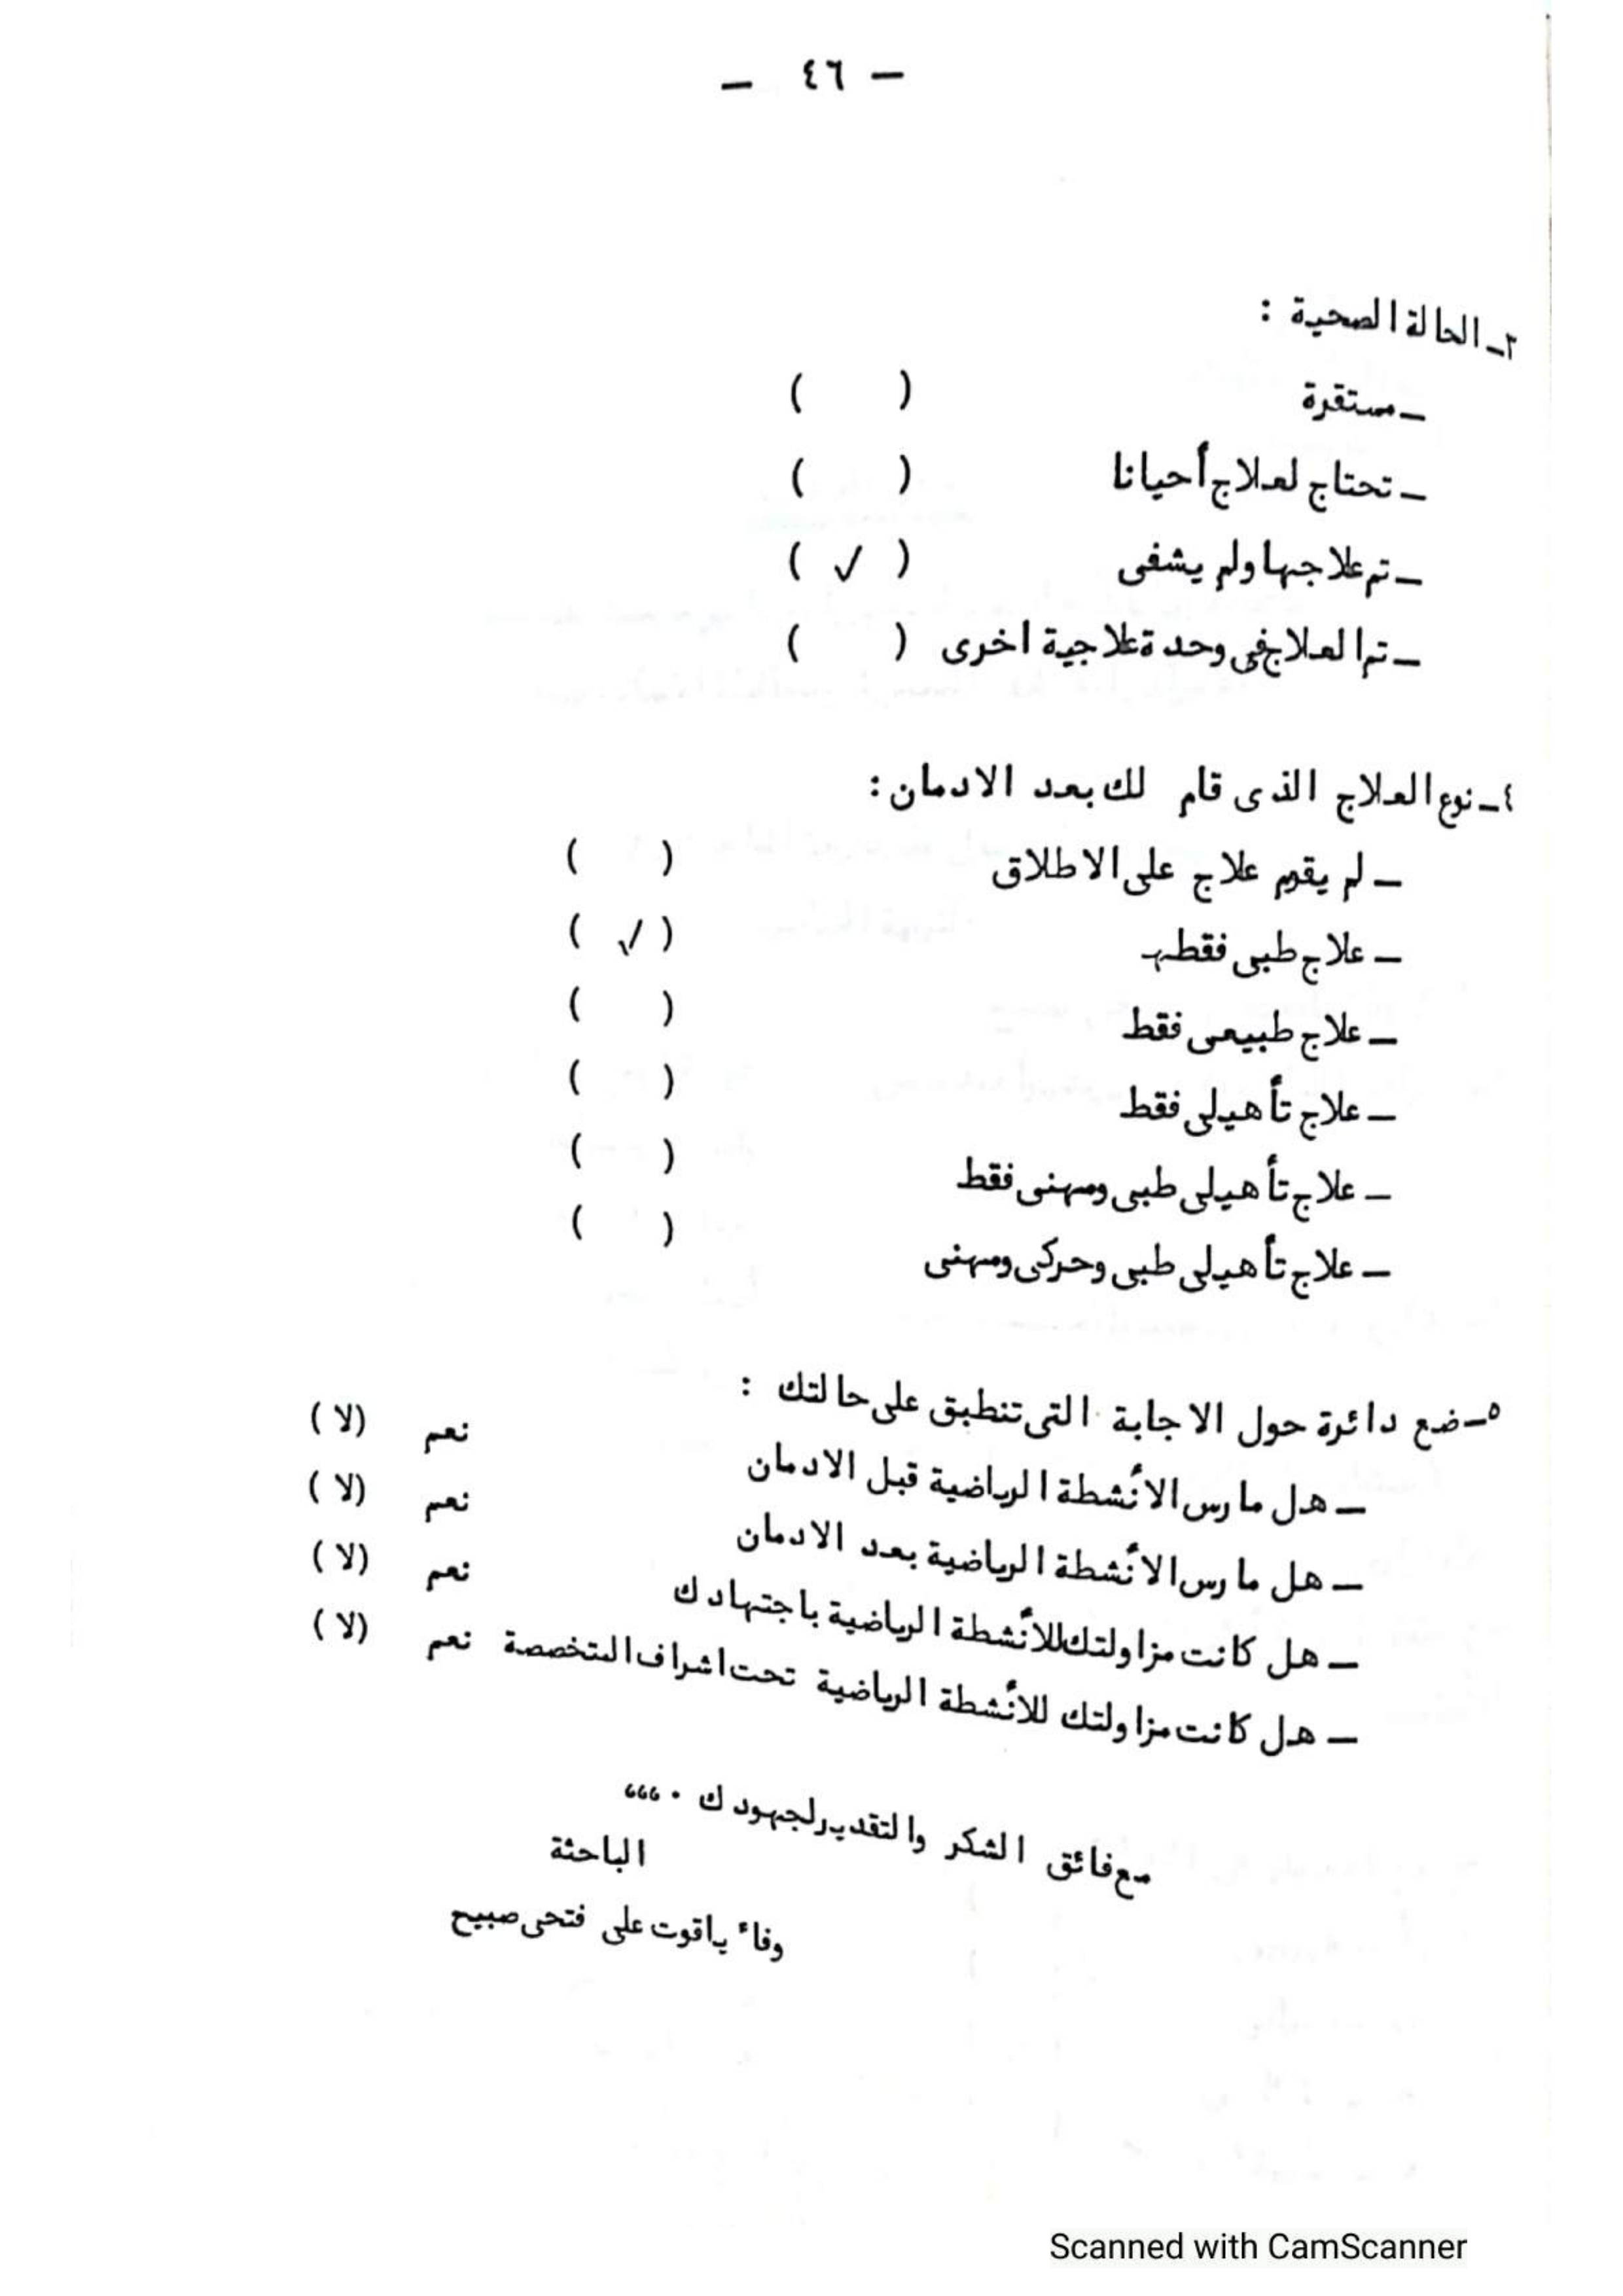 — ٤٦ —
٣ـ الحالة الصحية :
ـ مستقرة ( )
ـ تحتاج لعلاج أحيانا ( )
ـ تم علاجها ولم يشفى ( √ )
ـ تم العلاج فى وحدة علاجية اخرى ( )
٤ـ نوع العلاج الذى قام لك بعد الادمان :
ـ لم يقدم علاج على الاطلاق ( )
ـ علاج طبى فقط ( √ )
ـ علاج طبيعى فقط ( )
ـ علاج تأهيلى فقط ( )
ـ علاج تأهيلى طبى ومهنى فقط ( )
ـ علاج تأهيلى طبى وحركى ومهنى ( )
٥ـ ضع دائرة حول الاجابة التى تنطبق على حالتك :
ـ هل مارس الأنشطة الرياضية قبل الادمان نعم (لا)
ـ هل مارس الأنشطة الرياضية بعد الادمان نعم (لا)
ـ هل كانت مزاولتك للأنشطة الرياضية باجتهادك نعم (لا)
ـ هل كانت مزاولتك للأنشطة الرياضية تحت اشراف المتخصصة نعم (لا)
مع فائق الشكر والتقدير لجهودك ٠ ،،،،
الباحثة
وفاء ياقوت على فتحى صبيح
Scanned with CamScanner